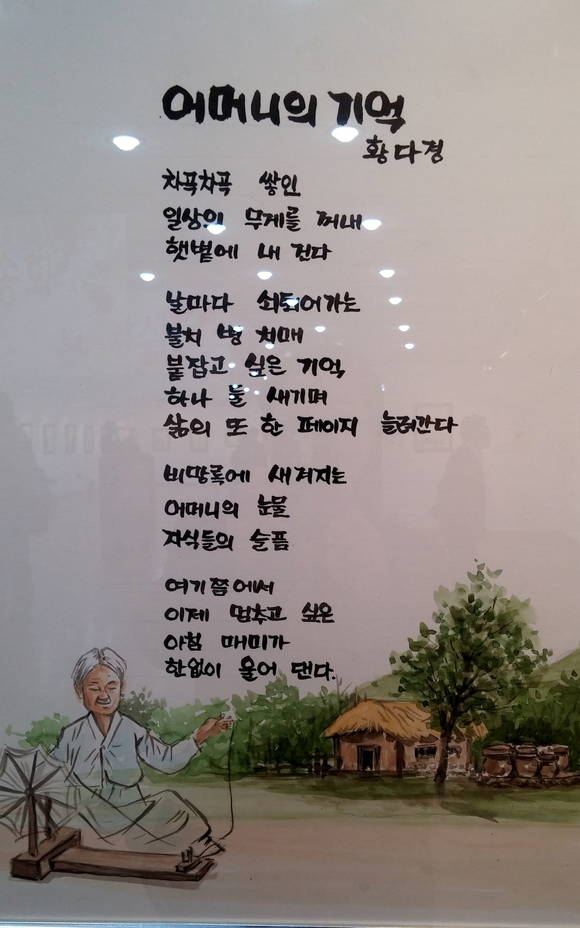 어머니의 기억
황다경
차곡차곡 쌓인
일상의 무게를 꺼내
햇볕에 내 건다
날마다 쇠퇴어가는
불치 병 치매
붙잡고 싶은 기억
하나 둘 새기며
삶의 또 한 페이지 늘려간다
비망록에 새겨지는
어머니의 눈물
자식들의 슬픔
여기쯤에서
이제 멈추고 싶은
아침 매미가
한없이 울어 댄다.